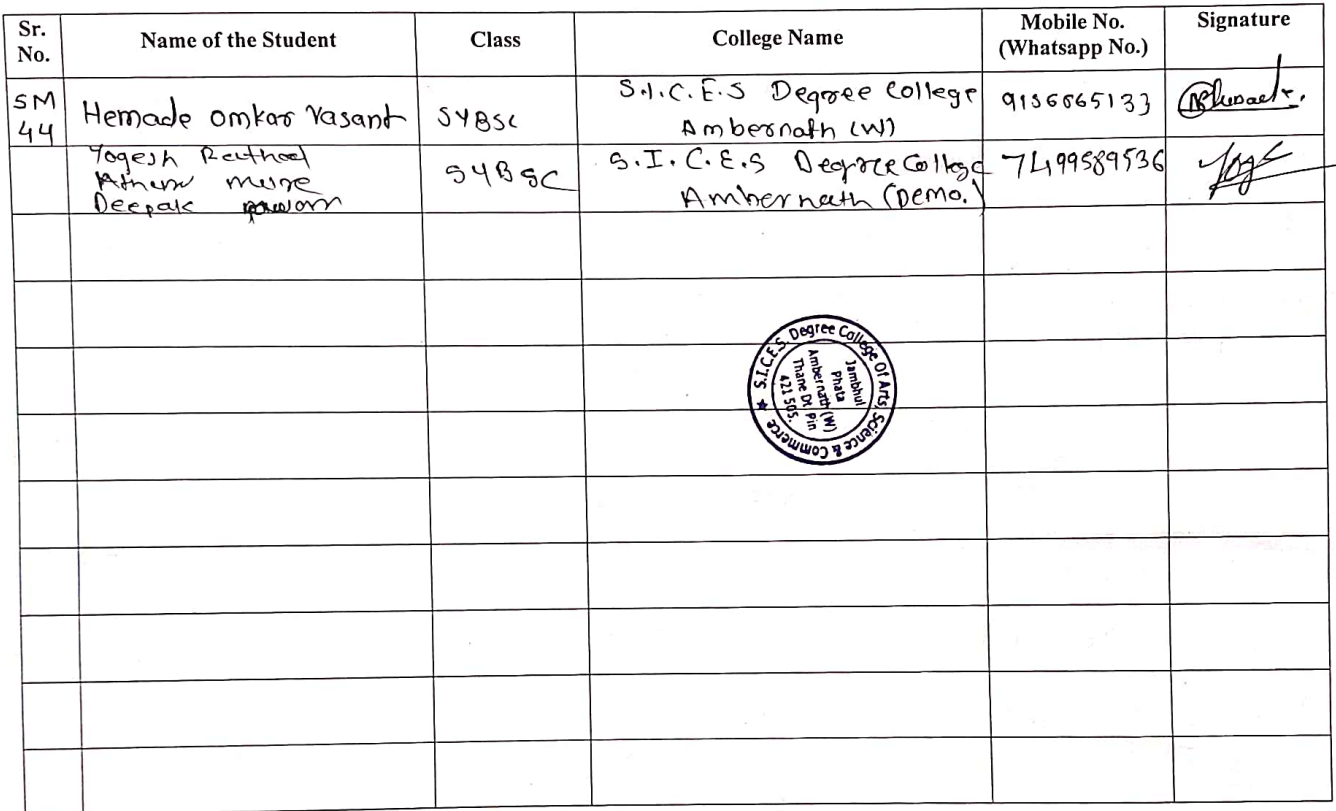 Sr. No. Name of the Student Class College Name Mobile No. (Whatsapp No.) Signature
SM 44 Hemade Omkar Vasant SYBSC S.I.C.E.S Degree College Ambernath (W)
Yogesh Rathod SYBSC S.I.C.E.S Degree College Ambernath (Demo.) 7499589536
Deepak
S.I.C.E.S. Degree College Of Arts, Science & Commerce ★
Jambhul
Phata
Ambernath (W)
Thane Dt. Pin
421 505.